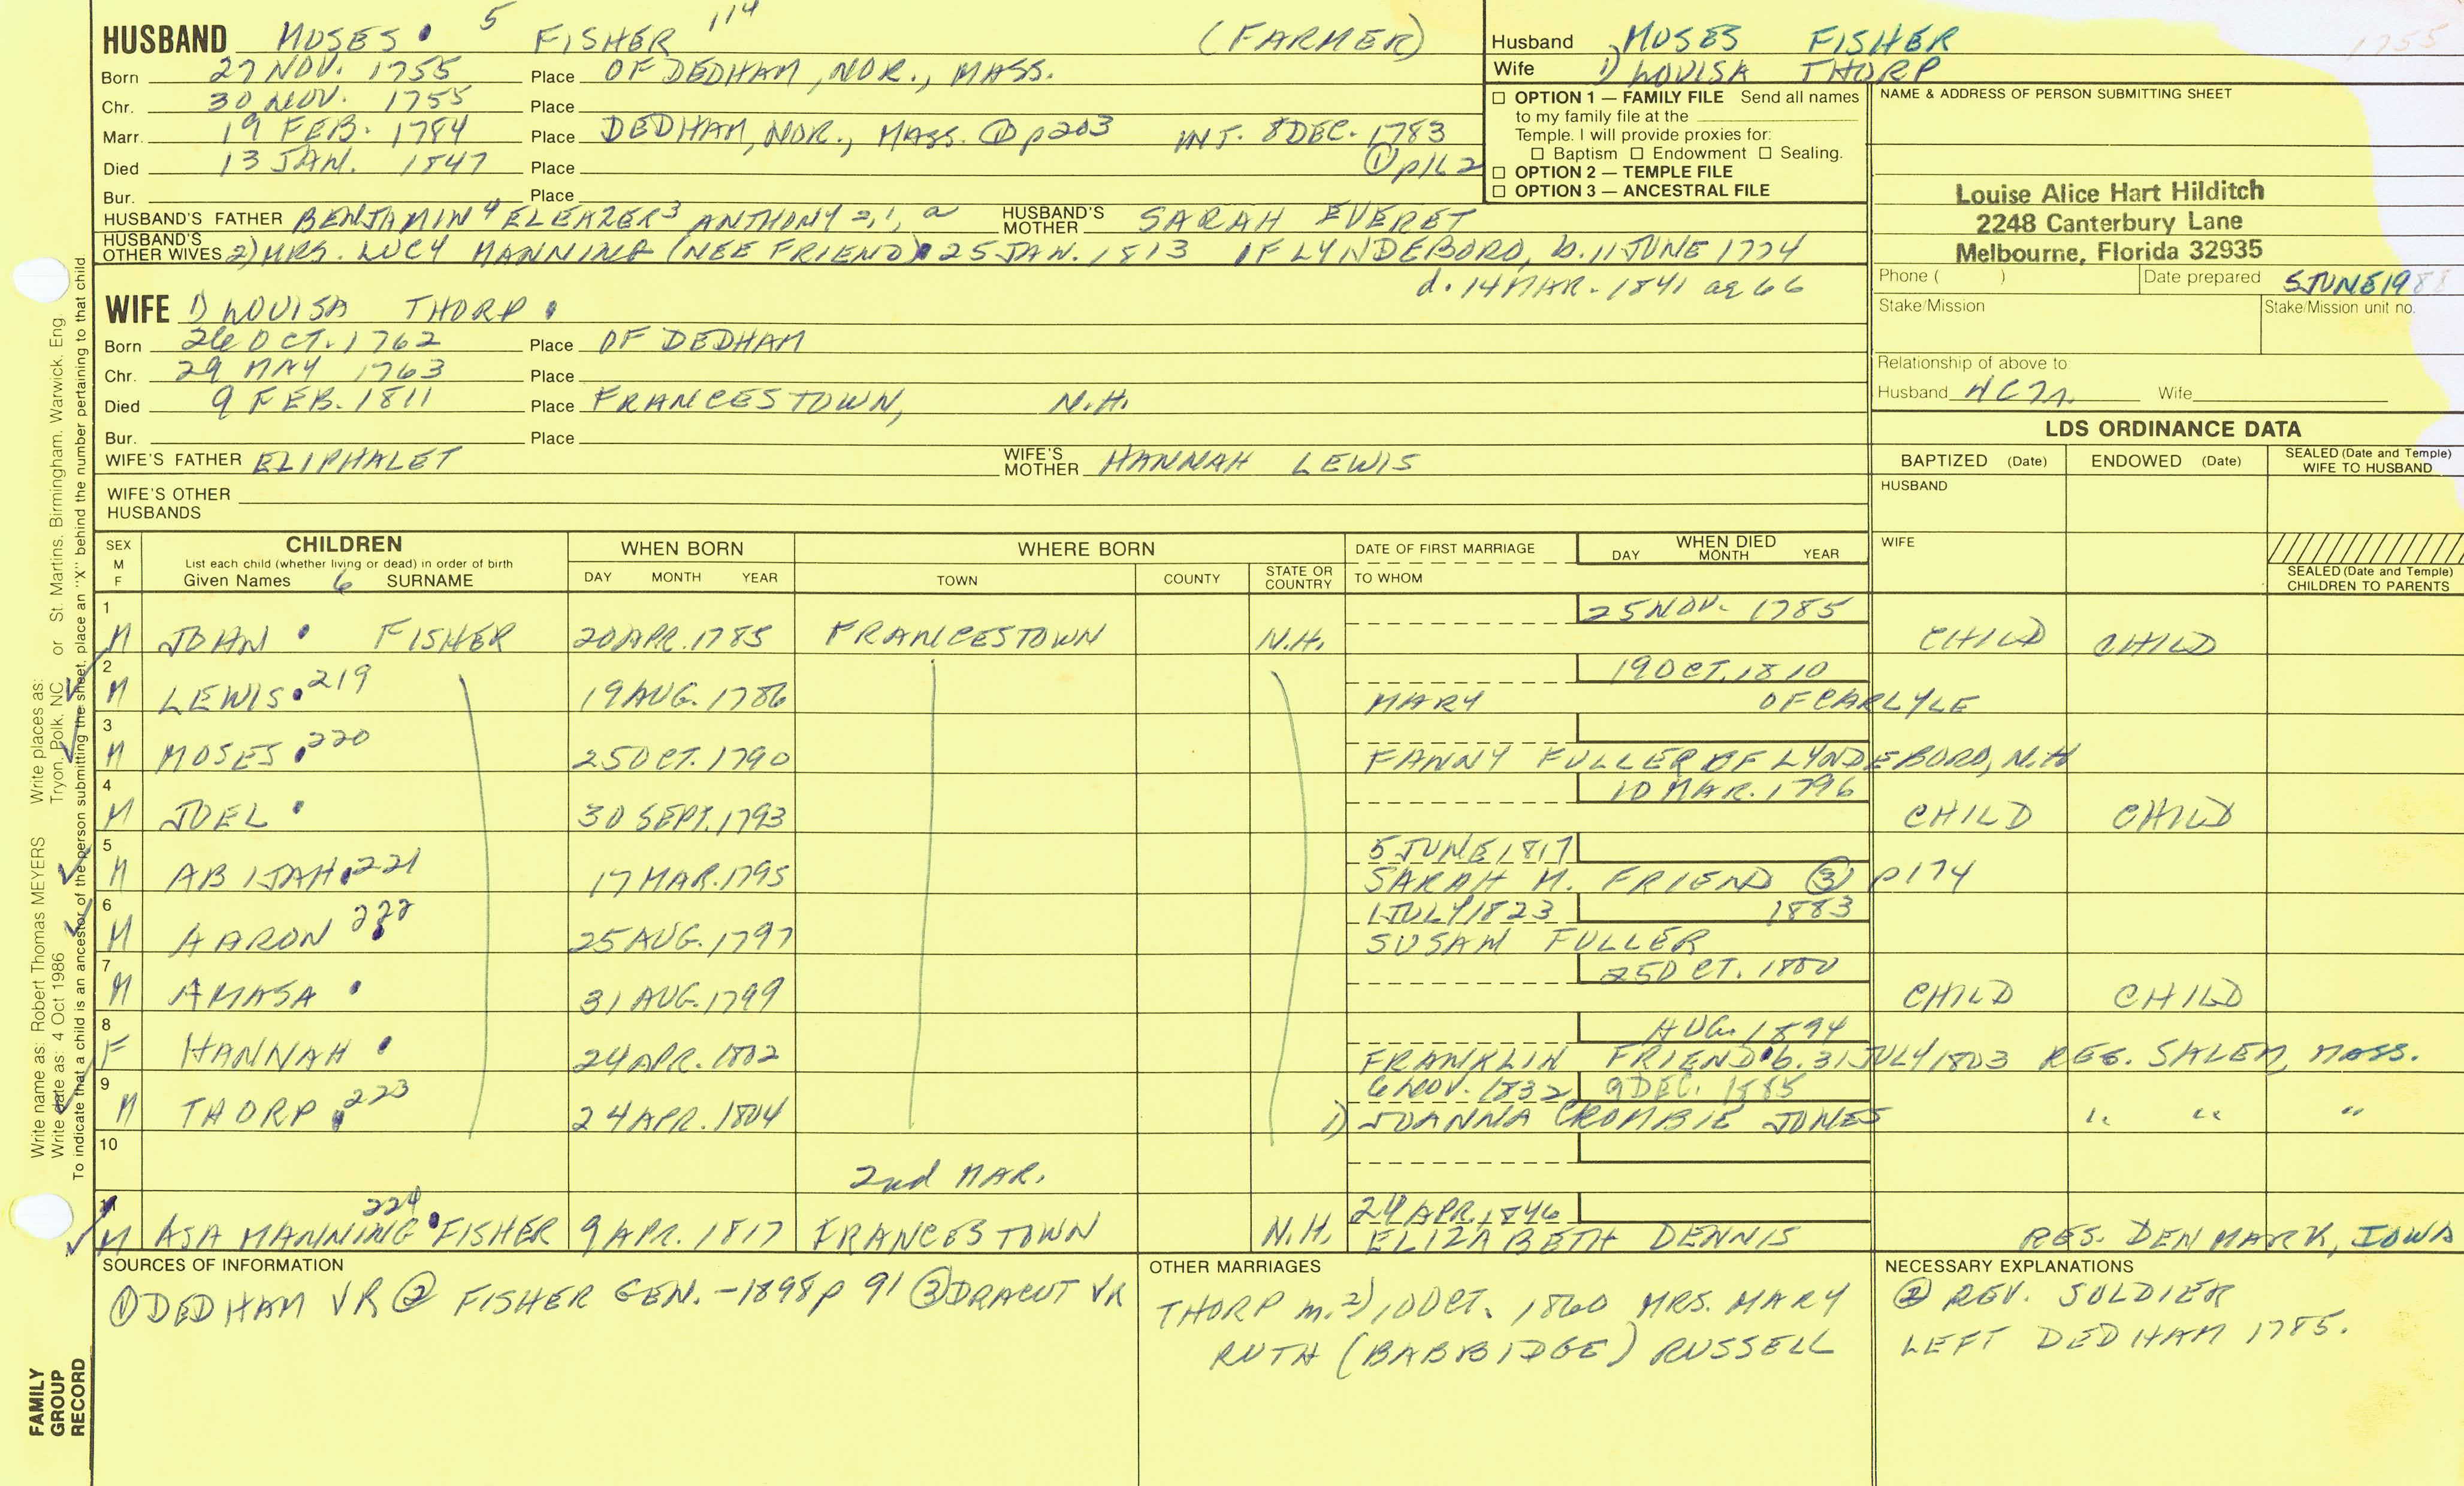 HUSBAND MOSES 5 FISHER 114 (FARMER)
Born 27 NOV. 1755 Place OF DEDHAM, NOR., MASS.
Chr. 30 NOV. 1755 Place
Marr. 19 FEB. 1784 Place DEDHAM, NOR., MASS. ① p203 INT. 8 DEC. 1783
① p162
Died 13 JAN. 1847 Place
Bur. Place
HUSBAND'S FATHER BENJAMIN 4 ELEAZER 3 ANTHONY 2, 1, a HUSBAND'S MOTHER SARAH EVERET
HUSBAND'S OTHER WIVES 2) MRS. LUCY MANNING (NEE FRIEND) 25 JAN. 1813 OF LYNDEBORO, b. 11 JUNE 1774
d. 14 MAR. 1841 ae 66
WIFE 1) LOUISA THORP
Born 26 OCT. 1762 Place OF DEDHAM
Chr. 29 MAY 1763 Place
Died 9 FEB. 1811 Place FRANCESTOWN, N.H.
Bur. Place
WIFE'S FATHER ELIPHALET WIFE'S MOTHER HANNAH LEWIS
WIFE'S OTHER HUSBANDS
Husband MOSES FISHER
1755
Wife 1) LOUISA THORP
☐ OPTION 1 — FAMILY FILE Send all names
to my family file at the
Temple. I will provide proxies for:
☐ Baptism ☐ Endowment ☐ Sealing.
☐ OPTION 2 — TEMPLE FILE
☐ OPTION 3 — ANCESTRAL FILE
NAME & ADDRESS OF PERSON SUBMITTING SHEET
Louise Alice Hart Hilditch
2248 Canterbury Lane
Melbourne, Florida 32935
Phone ( ) Date prepared 5 JUNE 1988
Stake/Mission Stake/Mission unit no.
Relationship of above to:
Husband Wife
LDS ORDINANCE DATA
BAPTIZED (Date) ENDOWED (Date) SEALED (Date and Temple) WIFE TO HUSBAND
HUSBAND
WIFE
SEALED (Date and Temple) CHILDREN TO PARENTS
SEX M F
CHILDREN
List each child (whether living or dead) in order of birth
Given Names 6 SURNAME
WHEN BORN
DAY MONTH YEAR
WHERE BORN
TOWN COUNTY STATE OR COUNTRY
DATE OF FIRST MARRIAGE
TO WHOM
WHEN DIED
DAY MONTH YEAR
1 25 NOV. 1785
M JOHN FISHER 20 APR. 1785 FRANCESTOWN N.H. CHILD CHILD
2 19 OCT. 1810
M LEWIS 219 19 AUG. 1786 MARY OF CARLYLE
3
M MOSES 220 25 OCT. 1790 FANNY FULLER OF LYNDEBORO, N.H
4 10 MAR. 1796
M JOEL 30 SEPT. 1793 CHILD CHILD
5 5 JUNE 1817
M ABIJAH 221 17 MAR. 1795 SARAH M. FRIEND ③ p174
6 1 JULY 1823 1883
M AARON 222 25 AUG. 1797 SUSAN FULLER
7 25 OCT. 1800
M AMASA 31 AUG. 1799 CHILD CHILD
8 AUG. 1894
F HANNAH 24 APR. 1802 FRANKLIN FRIEND b. 31 JULY 1803 RES. SALEM, MASS.
9 6 NOV. 1832 9 DEC. 1885
M THORP 223 24 APR. 1804 1) JOANNA CROMBIE JONES " " "
10
2nd MAR.
11 24 APR. 1846
M ASA MANNING 224 FISHER 9 APR. 1817 FRANCESTOWN N.H. ELIZABETH DENNIS RES. DENMARK, IOWA
SOURCES OF INFORMATION
① DEDHAM VR ② FISHER GEN. - 1898 p 91 ③ DRACUT VR
OTHER MARRIAGES
THORP m. 2) 10 OCT. 1860 MRS. MARY
RUTH (BABBIDGE) RUSSELL
NECESSARY EXPLANATIONS
② REV. SOLDIER
LEFT DEDHAM 1785.
Write name as: Robert Thomas MEYERS Write places as: Tryon, Polk, NC or St. Martins, Birmingham, Warwick, Eng.
Write date as: 4 Oct 1986
To indicate that a child is an ancestor of the person submitting the sheet, place an "X" behind the number pertaining to that child
FAMILY
GROUP
RECORD